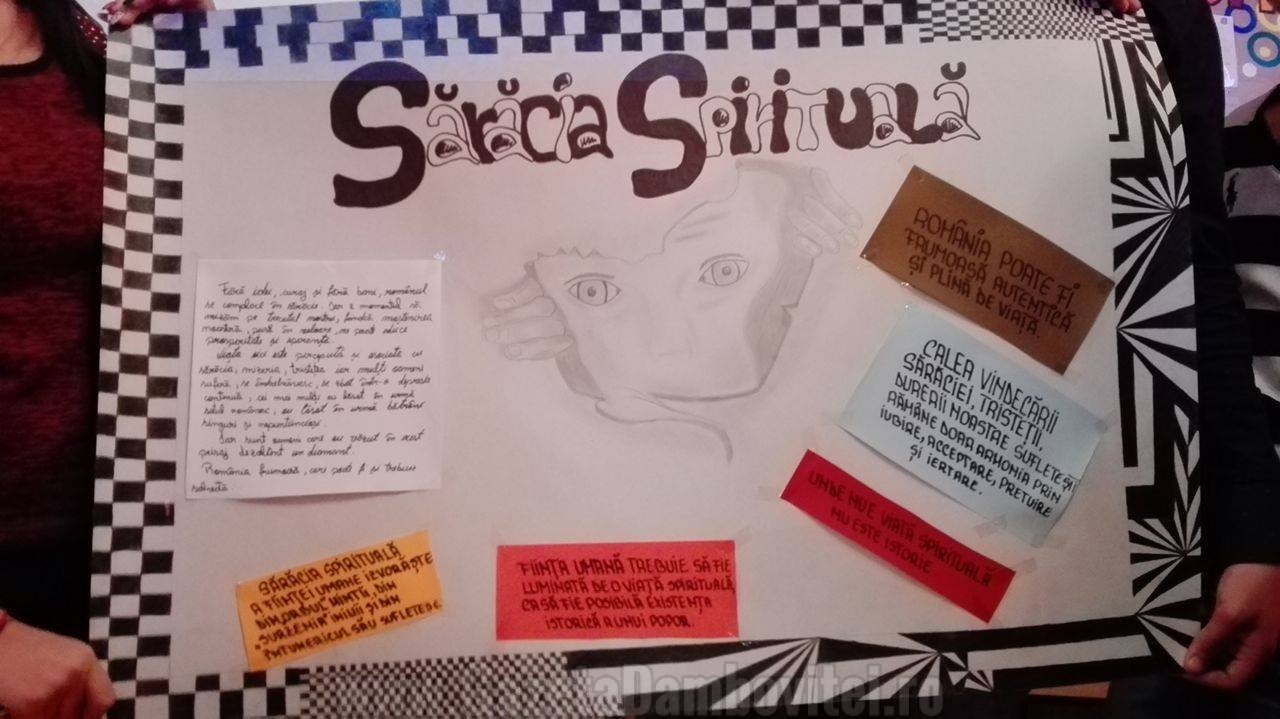 Sărăcia Spirituală
Fără idei, curaj și fără bani, românul
se complace în sărăcie. Dar e momentul să
privim pe trecutul nostru, fiindcă moștenirea
noastră, pusă în valoare, ne poate aduce
prosperitate și speranță.
Viața aici este percepută și asociată cu
sărăcia, mizeria, tristețea iar mulți oameni
suferă, se îmbolnăvesc, se zbat într-o
continuă, cei mai mulți au lăsat în urmă
satul românesc, au lăsat în urmă bătrâni
singuri și neputincioși.
Dar sunt oameni care au văzut în acest
peisaj dezolant un diamant.
România frumoasă, care poate fi și trebuie
salvată.
ROMÂNIA POATE FI
FRUMOASĂ AUTENTICĂ
ȘI PLINĂ DE VIAȚĂ.
CALEA VINDECĂRII
SĂRĂCIEI, TRISTEȚII,
DURERII NOASTRE SUFLETEȘTI
RĂMÂNE DOAR ARMONIA PRIN
IUBIRE, ACCEPTARE, PREȚUIRE
ȘI IERTARE.
UNDE NU E VIAȚĂ SPIRITUALĂ
NU ESTE ISTORIE
SĂRĂCIA SPIRITUALĂ
A FIINȚEI UMANE IZVORĂȘTE
DIN ORBUL MINȚII, DIN
"SURZENIA" INIMII ȘI DIN
"ÎNTUNERICUL SĂU SUFLETESC.
FIINȚA UMANĂ TREBUIE SĂ FIE
LUMINATĂ DE O VIAȚĂ SPIRITUALĂ,
CA SĂ FIE POSIBILĂ EXISTENȚA
ISTORICĂ A UNUI POPOR.
www.GazetaDambovitei.ro